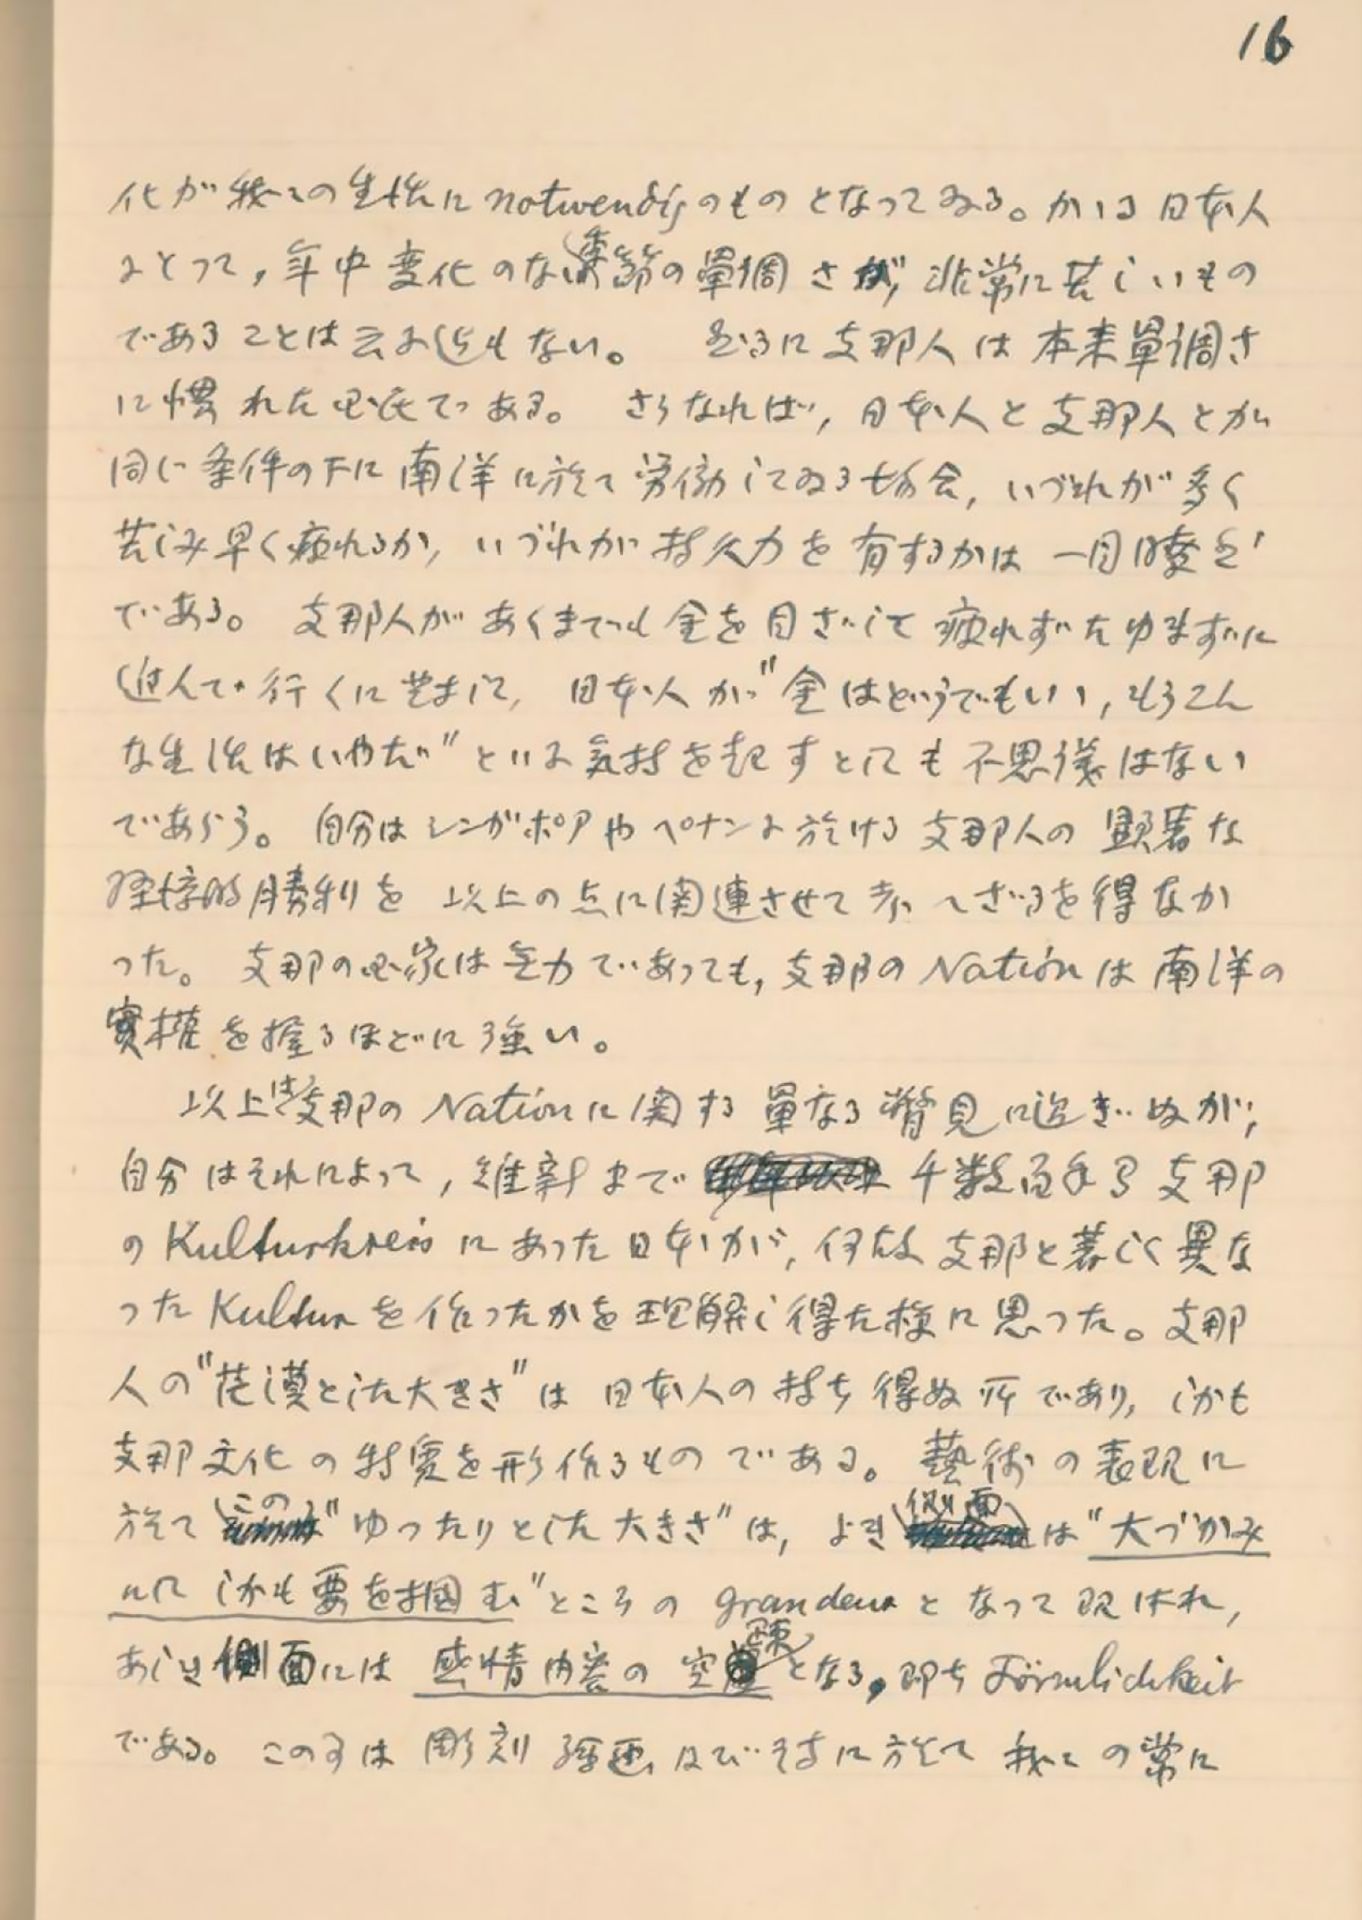 16
化が我々の生活に notwendig のものとなってゐる。かゝる日本人
にとって，年中変化のない季節の單調さが，非常に苦しいもの
であることは云ふ迄もない。 然るに支那人は本来單調さ
に慣れた國民である。 さうなれば，日本人と支那人とが
同じ条件の下に南洋に於て労働してゐる場合，いづれが多く
苦しみ早く疲れるか，いづれが持久力を有するかは一目瞭然
である。 支那人があくまでも金を目ざして疲れずたゆまずに
進んで行くに対して，日本人が"金はどうでもいい，もうこん
な生活はいやだ"といふ気持を起すとしても不思議はない
であらう。 自分はシンガポアやペナンに於ける支那人の顕著な
経済的勝利を 以上の点に関連させて考へざるを得なか
った。 支那の國家は無力であっても，支那の Nation は南洋の
實權を握るほどに強い。
以上は支那の Nation に関する單なる瞥見に過ぎぬが，
自分はそれによって，維新まで 千数百年間支那
の Kulturkreis にあった日本が，何故支那と著しく異な
った Kultur を作ったかを理解し得た様に思った。支那
人の"茫漠とした大きさ"は日本人の持ち得ぬ所であり，しかも
支那文化の特質を形作るものである。 藝術の表現に
於て この"ゆったりとした大きさ"は，よき側面は"大づかみ
にしかも要を掴む"ところの grandeur となって現はれ，
あしき側面には 感情内容の空疎となる，即ち Förmlichkeit
である。 この事は彫刻 絵画 及び に於て我々の常に